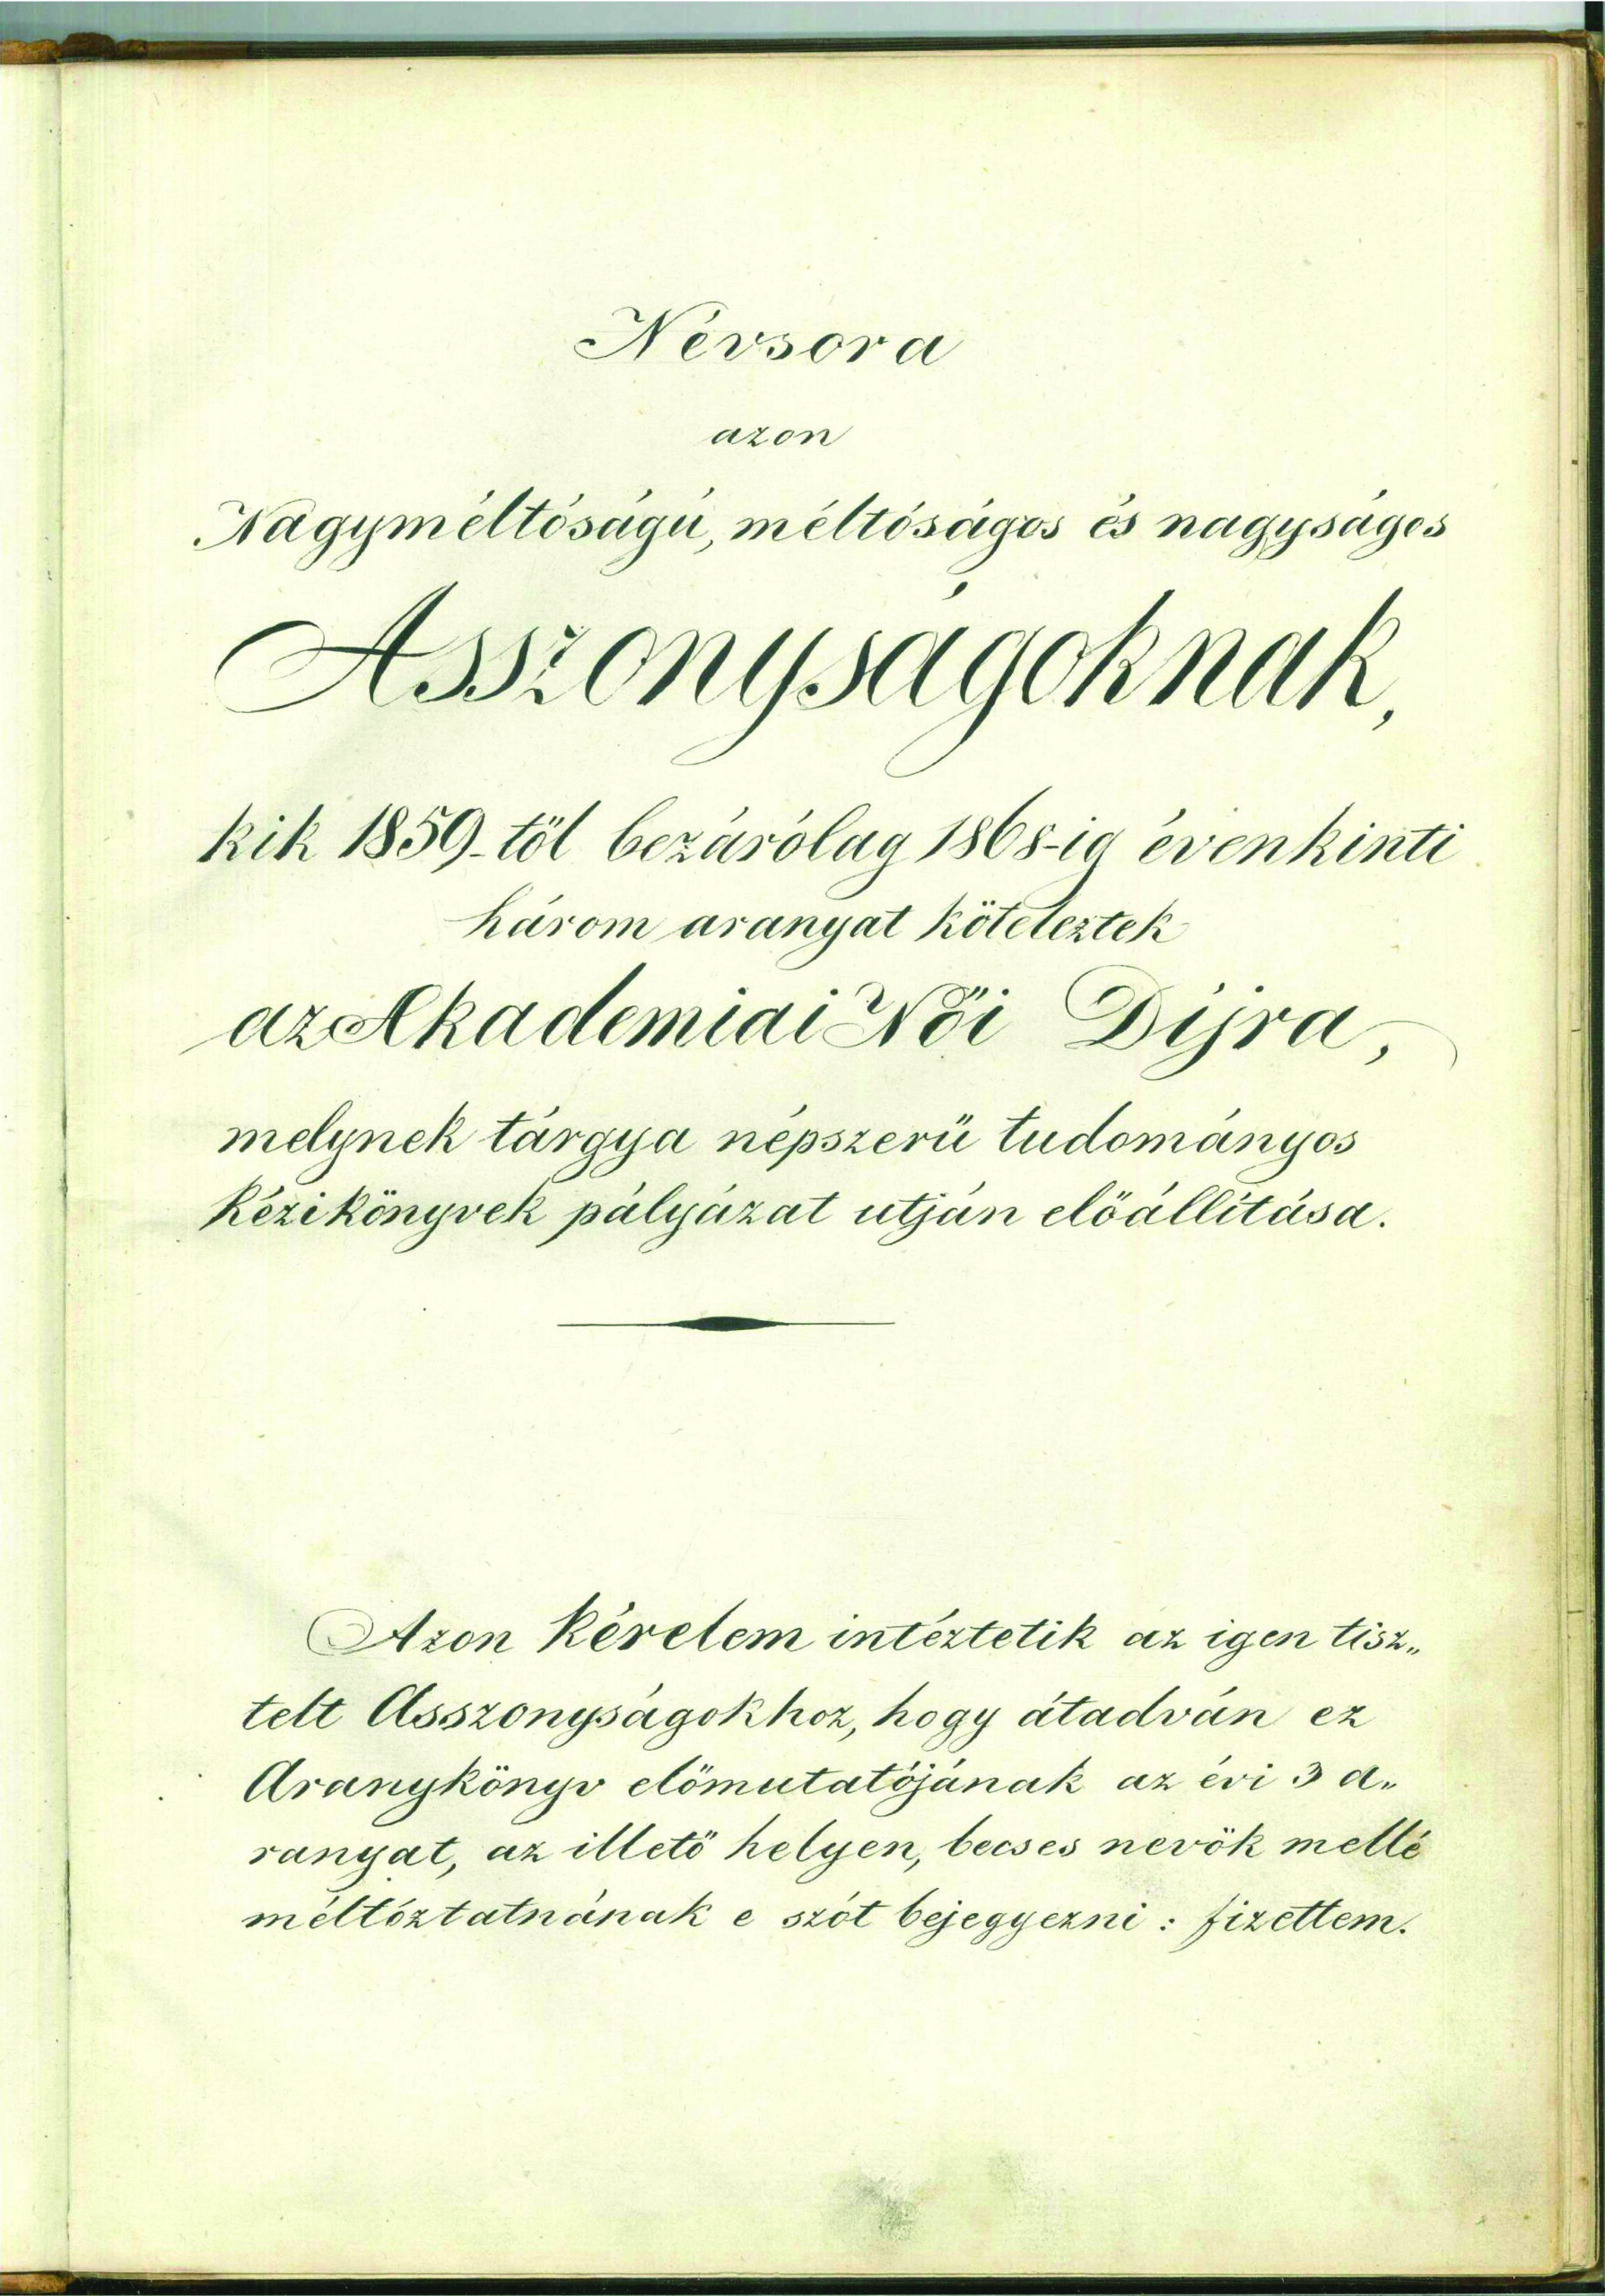 Névsora
azon
Nagyméltóságú, méltóságos és nagyságos
Asszonyságoknak,
kik 1859-től bezárólag 1868-ig évenkinti
három aranyat köteleztek
az Akademiai Női Díjra,
melynek tárgya népszerü tudományos
Kézikönyvek pályázat utján előállítása.
Azon Kérelem intéztetik az igen tisz„
telt Asszonyságokhoz, hogy átadván ez
Aranykönyv előmutatójának az évi 3 a„
ranyat, az illető helyen, becses nevök mellé
méltóztatnának e szót bejegyezni : fizettem.